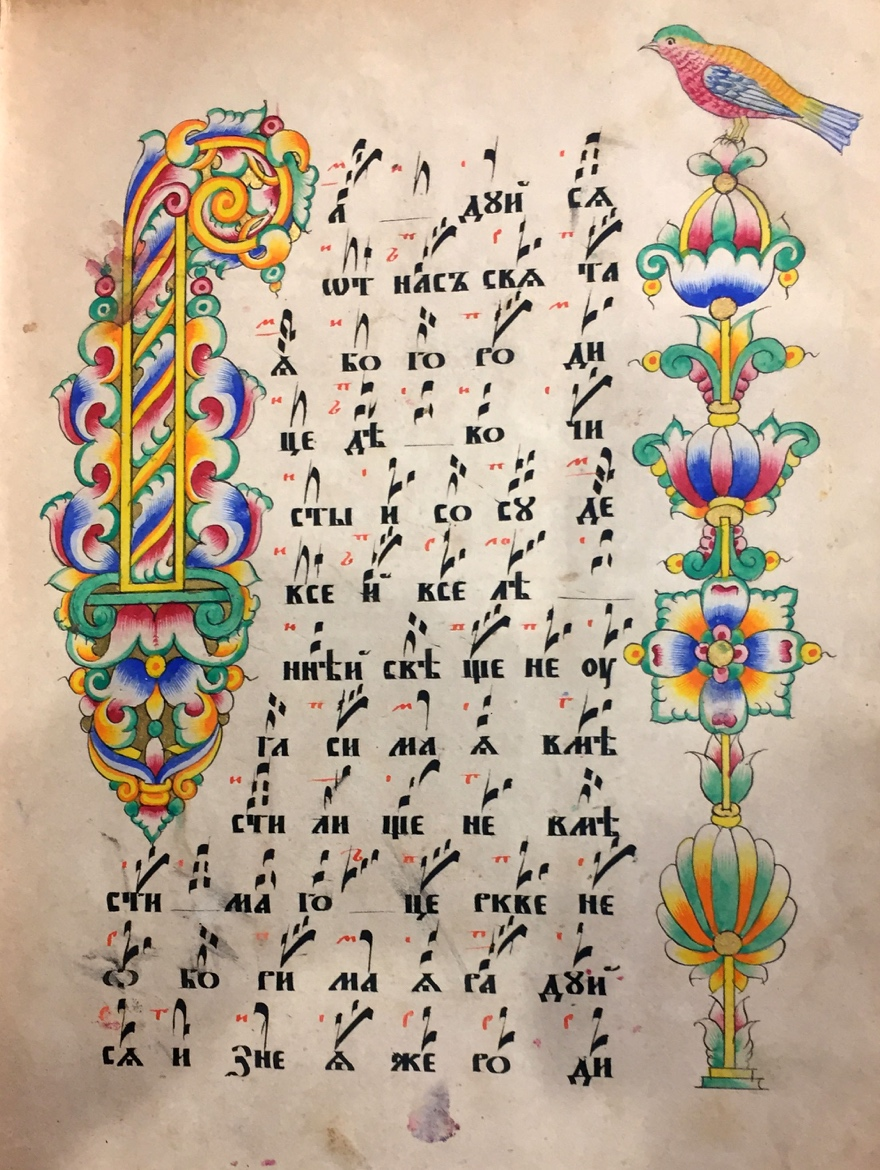 Р А ДꙊЙ СѦ
ѾТ НАСЪ СВѦ ТА
Ѧ БО ГО РО ДИ
ЦЕ ДѢ ВО ЧИ
СТЫ И СО СУ ДЕ
ВСЕ Й ВСЕ ЛѢ
ННѢЙ СВѢ ЩЕ НЕ ОУ
ГА СИ МА Ѧ ВМѢ
СТИ ЛИ ЩЕ НЕ ВМѢ
СТИ МА ГО ЦЕ РКВЕ НЕ
Ѡ БО РИ МА Ѧ РА ДꙊЙ
СѦ И ЗНЕ Ѧ ЖЕ РО ДИ